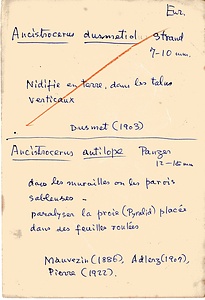 Eur.
Ancistrocerus dusmetiol Strand
7-10 mm.
Nidifie en terre, dans les talus
verticaux
Dusmet (1903)
Ancistrocerus antilope Panzer
12-15 mm
dans les murailles ou les parois
sableuses -
paralyser la proie (Pyralid) placée
dans des feuilles roulées
Mauvezin (1886), Adlerz (1907),
Pierre (1922).